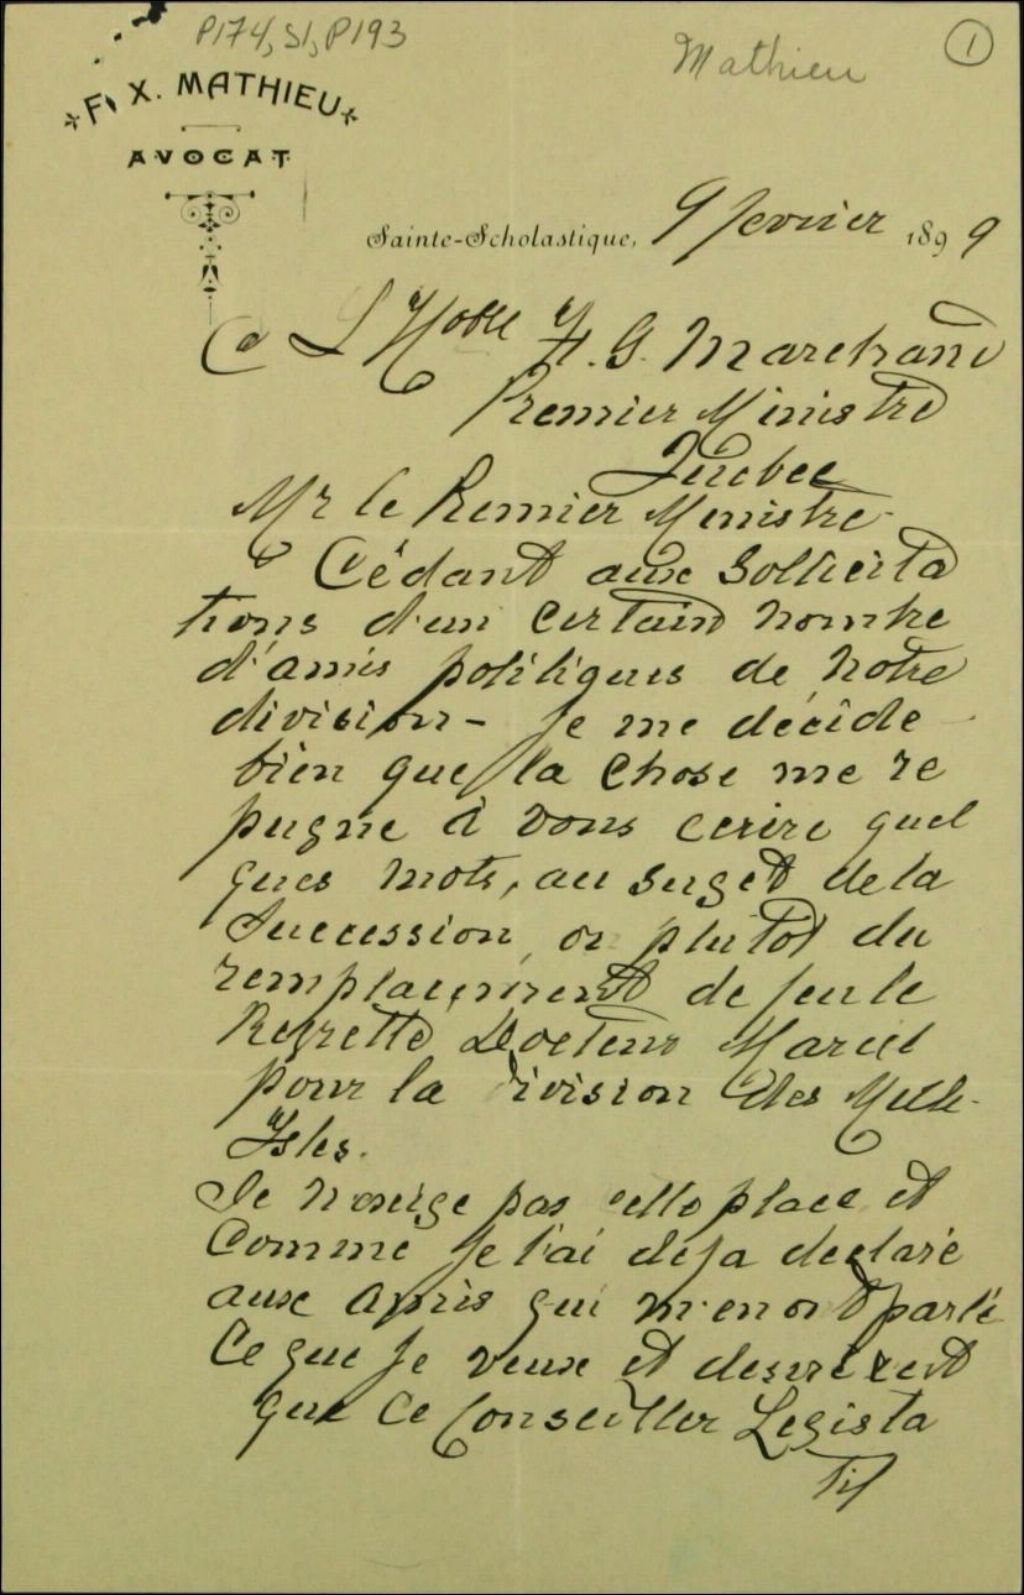 P174, S1, P193
Mathieu
1
F. X. MATHIEU
AVOCAT
Sainte-Scholastique, 9 fevrier 1899
a L'Hoble F. G. Marchand
Premier Ministre
Quebec
Mr le Premier Ministre
Cédant aux sollicita
tions d'un certain nombre
d'amis politiques de notre
division - je me décide
bien que la chose me re
pugne à vous ecrire quel
ques mots, au sujet de la
succession, ou plutot du
remplacement de feu le
Regretté Docteur Marcil
pour la division des Mille-
Isles.
Je n'exige pas cette place et
comme je l'ai deja declaré
aux amis qui m'en ont parlé
Ce que je veux et desire c'est
que ce Conseiller Legista
tif